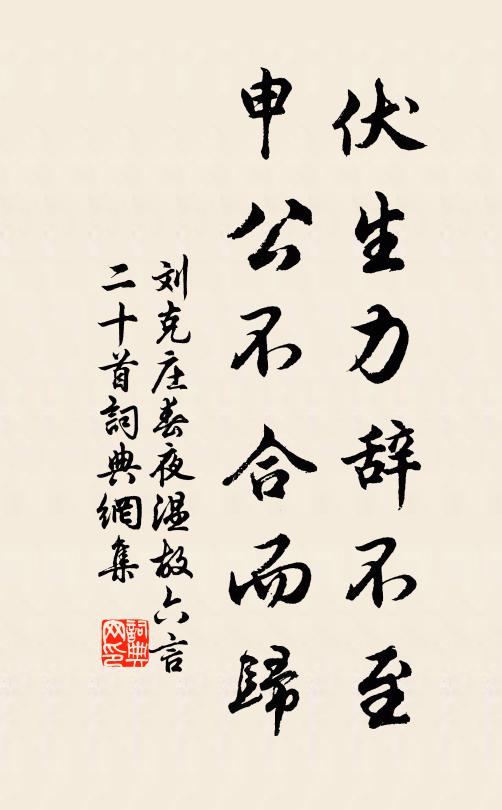 伏生力辞不至
申公不合而歸
刘克庄春夜温故六言
二十首詞典網集
詞典网印